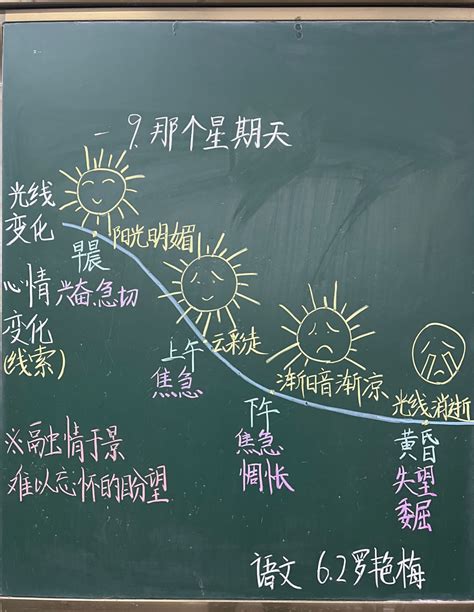 9.那个星期天
光线
变化
阳光明媚
早晨
心情
变化
(线索)
兴奋.急切
云彩走
上午
焦急
渐暗渐凉
下午
焦急
惆怅
光线消逝
黄昏
失望
委屈
※融情于景
难以忘怀的盼望
语文 6.2罗艳梅